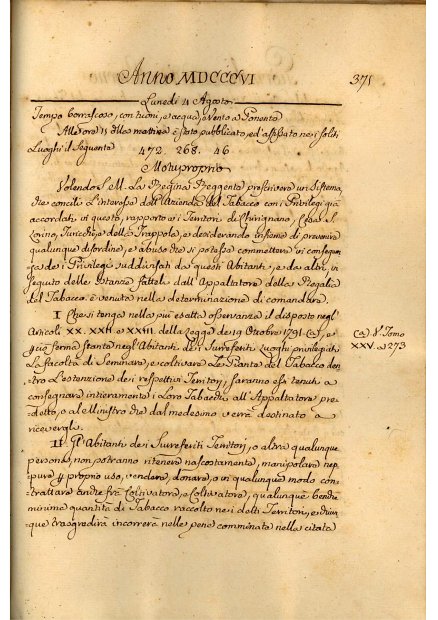 Anno MDCCCVI
371
Lunedì 11 Agosto
Tempo borrascoso, con tuoni, e acqua, e vento a Ponente
Alle ore 11 della mattina è stato pubblicato, ed affissato nei soliti
Luoghi il Seguente
472. 268. 46
Motuproprio
Volendo S. M. La Regina Reggente prescrivere un Sistema,
che concili l'interesse dell'Azienda del Tabacco con i Privilegi già
accordati in questo rapporto ai Territori di Chirignano, Cospaia S.
Lorino, Turicchi, e della Trappola, e desiderando insieme di prevenire
qualunque disordine, e abuso che si potesse commettere in consequen
sa dei Privilegi suddivisati da questi Abitanti, e da altri, in
seguito delle Istanze fatteli dall'Appaltatore della Regalia
del Tabacco è venuta nella determinazione di comandare.
I Che si tenga nella più esatta osservanza il disposto negl'
Articoli XX. XXII e XXIII. della Legge de 19 Ottobre 1791. (a), e
che ferma stante negl'Abitanti dei Surreferiti Luoghi privilegiati
La facoltà di Seminare, e coltivare Le Piante del Tabacco den-
tro L'estenzione dei respettivi Territorj, saranno essi tenuti a
consegnare intieramente i Loro Tabacchi all'Appaltatore pre-
detto, o al Ministro che dal medesimo verrà destinato a
riceverli.
(a) V. Tomo
XXV. a 273
II. Gl'Abitanti dei Surreferiti Territorj, o altra qualunque
persona, non potranno ritenere nascostamente, manipolare nep-
pure per proprio uso, vendere, donare, o in qualunque modo con-
trattare anche fra Coltivatore, e Coltivatore, qualunque benchè
minima quantità di Tabacco raccolto nei detti Territori, e chiun-
que trasgredirà incorrerà nelle pene comminate nella citata